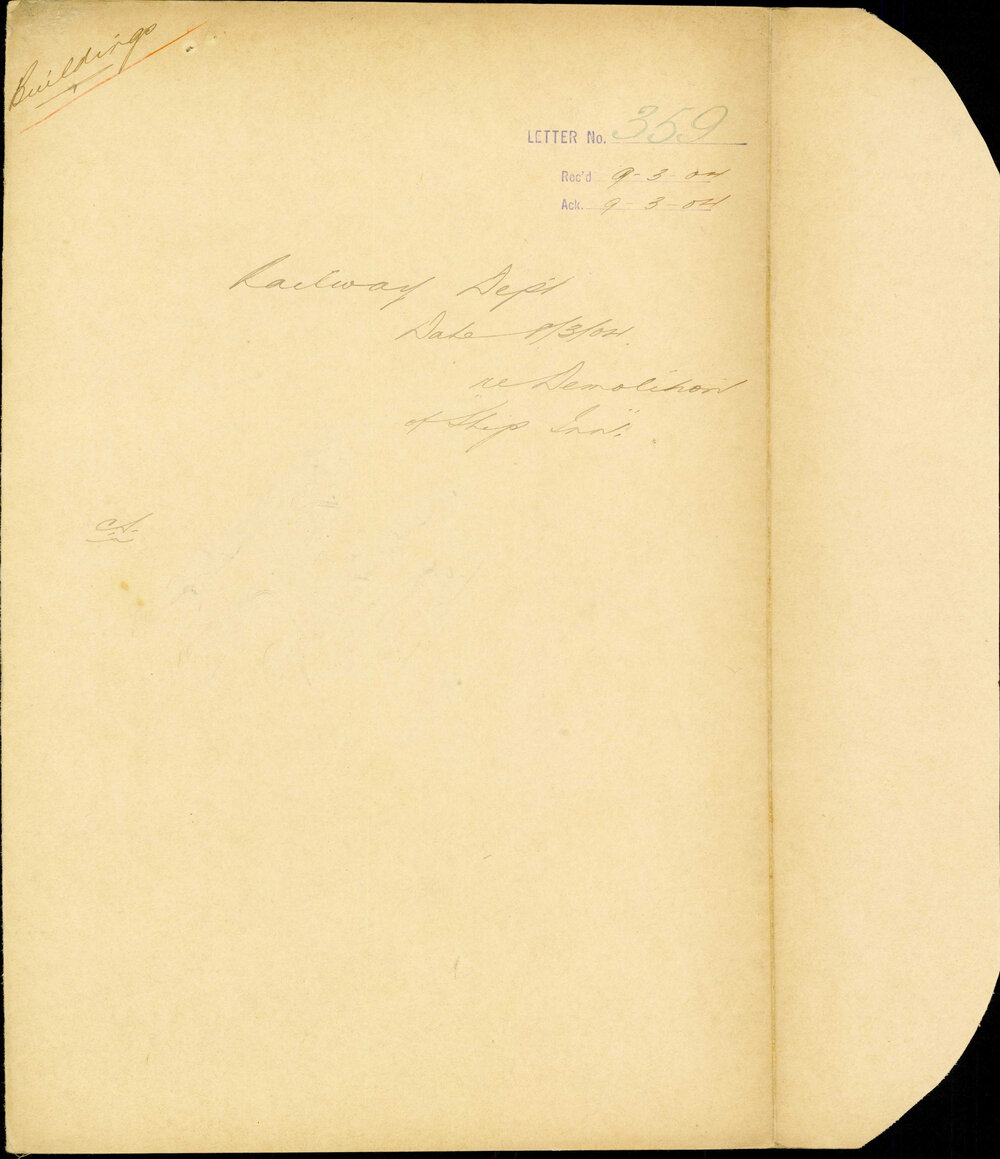 Buildings
LETTER No. 359
Rec'd 9-3-04
Ack. 9-3-04
Railway Dept
Date 8/3/04.
re Demolition
of "Ship Inn".